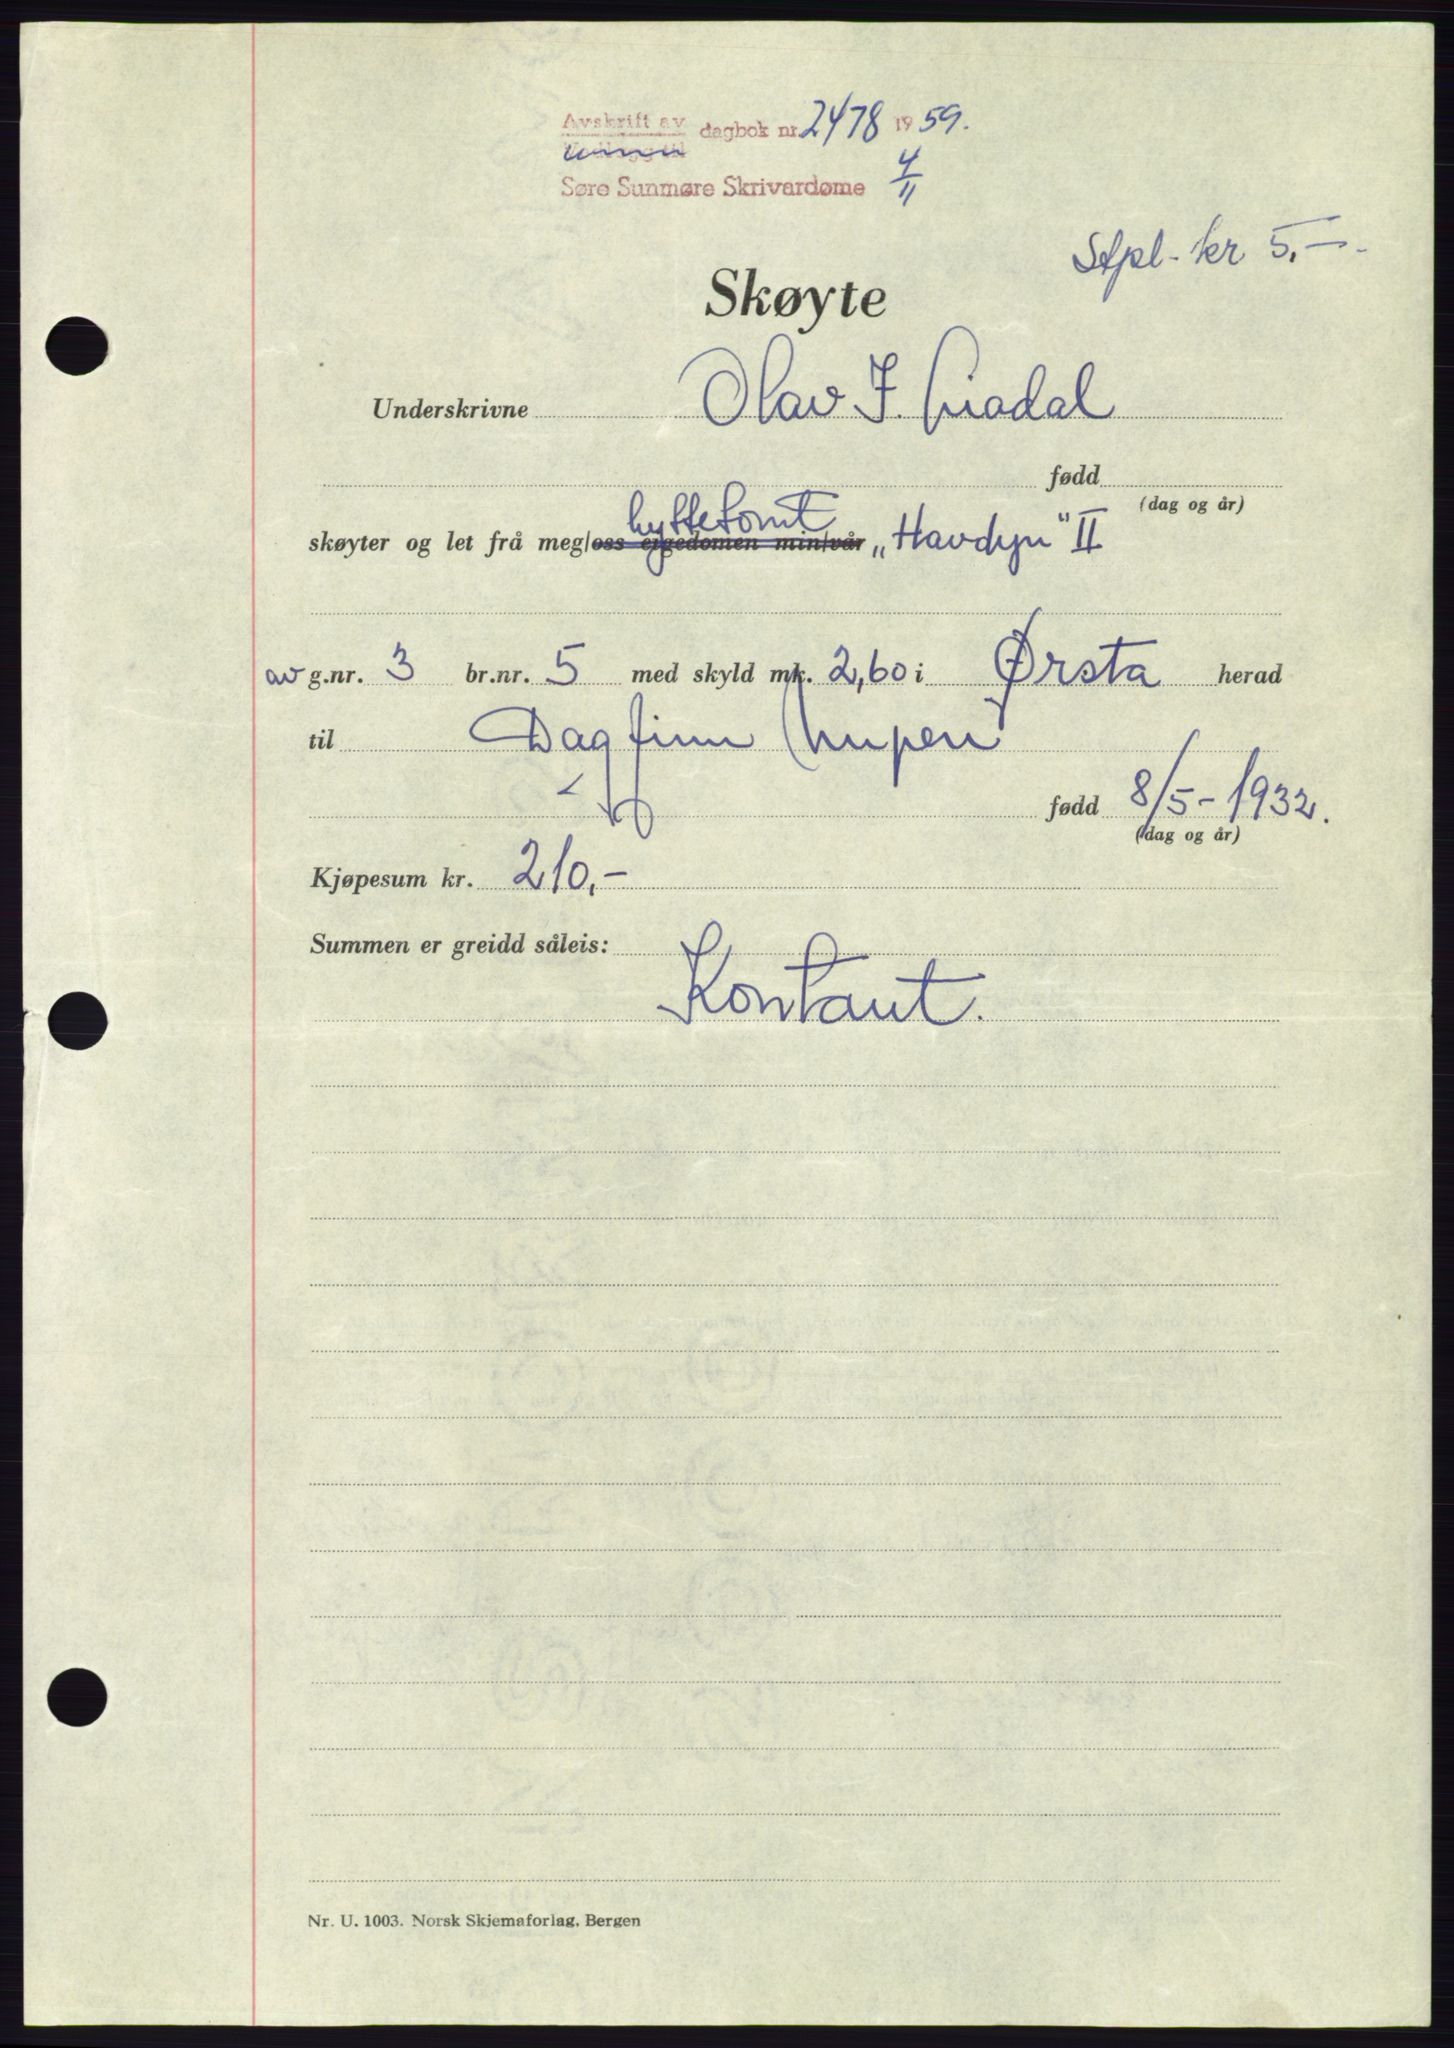 Avskrift av dagbok nr 2478 1959.
Søre Sunmøre Skrivardøme 4/11
Stpl. kr 5,-
Skøyte
Underskrivne Olav J. Liadal
fødd
(dag og år)
hyttetomt
skøyter og let frå meg/oss eigedomen min/vår „Havdyn" II
av g.nr. 3 br.nr. 5 med skyld mk. 2,60 i Ørsta herad
til Dagfinn Nupen
fødd 8/5-1932.
(dag og år)
Kjøpesum kr. 210,-
Summen er greidd såleis:
Kontant.
Nr. U. 1003. Norsk Skjemaforlag, Bergen